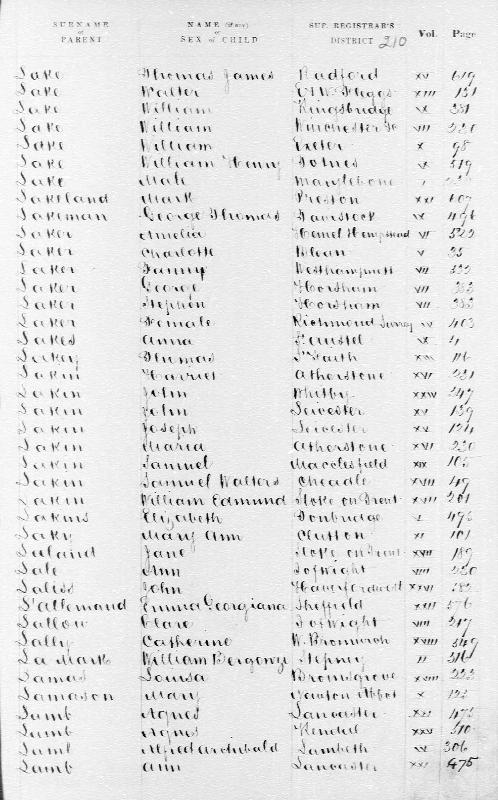 SURNAME OF PARENT NAME (if any) or SEX of CHILD SUP. REGISTRAR'S DISTRICT 210 Vol. Page
Lake Thomas James Radford XV 619
Lake Walter E & W Fleggs XIII 151
Lake William Kingsbridge IX 331
Lake William Winchester VII 220
Lake William Exeter X 98
Lake William Henry Totnes IX 519
Lake Male Marylebone I
Lakeland Mark Preston XXI 607
Lakeman George Thomas Tavistock IX 496
Laker Amelia Hemel Hempstead VI 522
Laker Charlotte Blean V 35
Laker Fanny Westhampnett VII 552
Laker George Horsham VII 353
Laker Stephen Horsham VII 353
Laker Female Richmond Surrey IV 403
Lakes Anna St Austel IX 4
Lakey Thomas St Faith XIII 116
Lakin Harriet Atherstone XVI 231
Lakin John Whitby XXIV 547
Lakin John Leicester XV 139
Lakin Joseph Leicester XV 124
Lakin Maria Atherstone XVI 230
Lakin Samuel Macclesfield XIX 105
Lakin Samuel Walters Cheadle XVIII 49
Lakin William Edmund Stoke on Trent XVII 201
Lakins Elizabeth Tonbridge V 496
Laky Mary Ann Clutton XI 101
Lalaind Jane Stoke on Trent XVII 189
Lale Ann I of Wight VIII 230
Laliss John Haverfordwest XXVI 582
L'allemand Emma Georgiana Sheffield XXII 576
Lallow Clare I of Wight VIII 217
Lally Catherine W. Bromwich XVIII 549
La Mark William Bergonzi Stepney II 316
Lamas Louisa Bromsgrove XVIII 223
Lamason Mary Newton Abbot X 123
Lamb Agnes Lancaster XXI 473
Lamb Agnes Kendal XXV 510
Lamb Alfred Archibald Lambeth IV 306
Lamb Ann Lancaster XXI 475